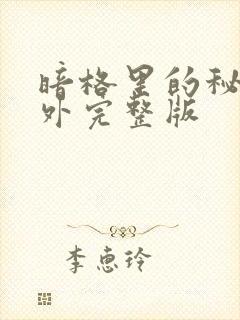 暗格里的秘
外完整版
李惠玲